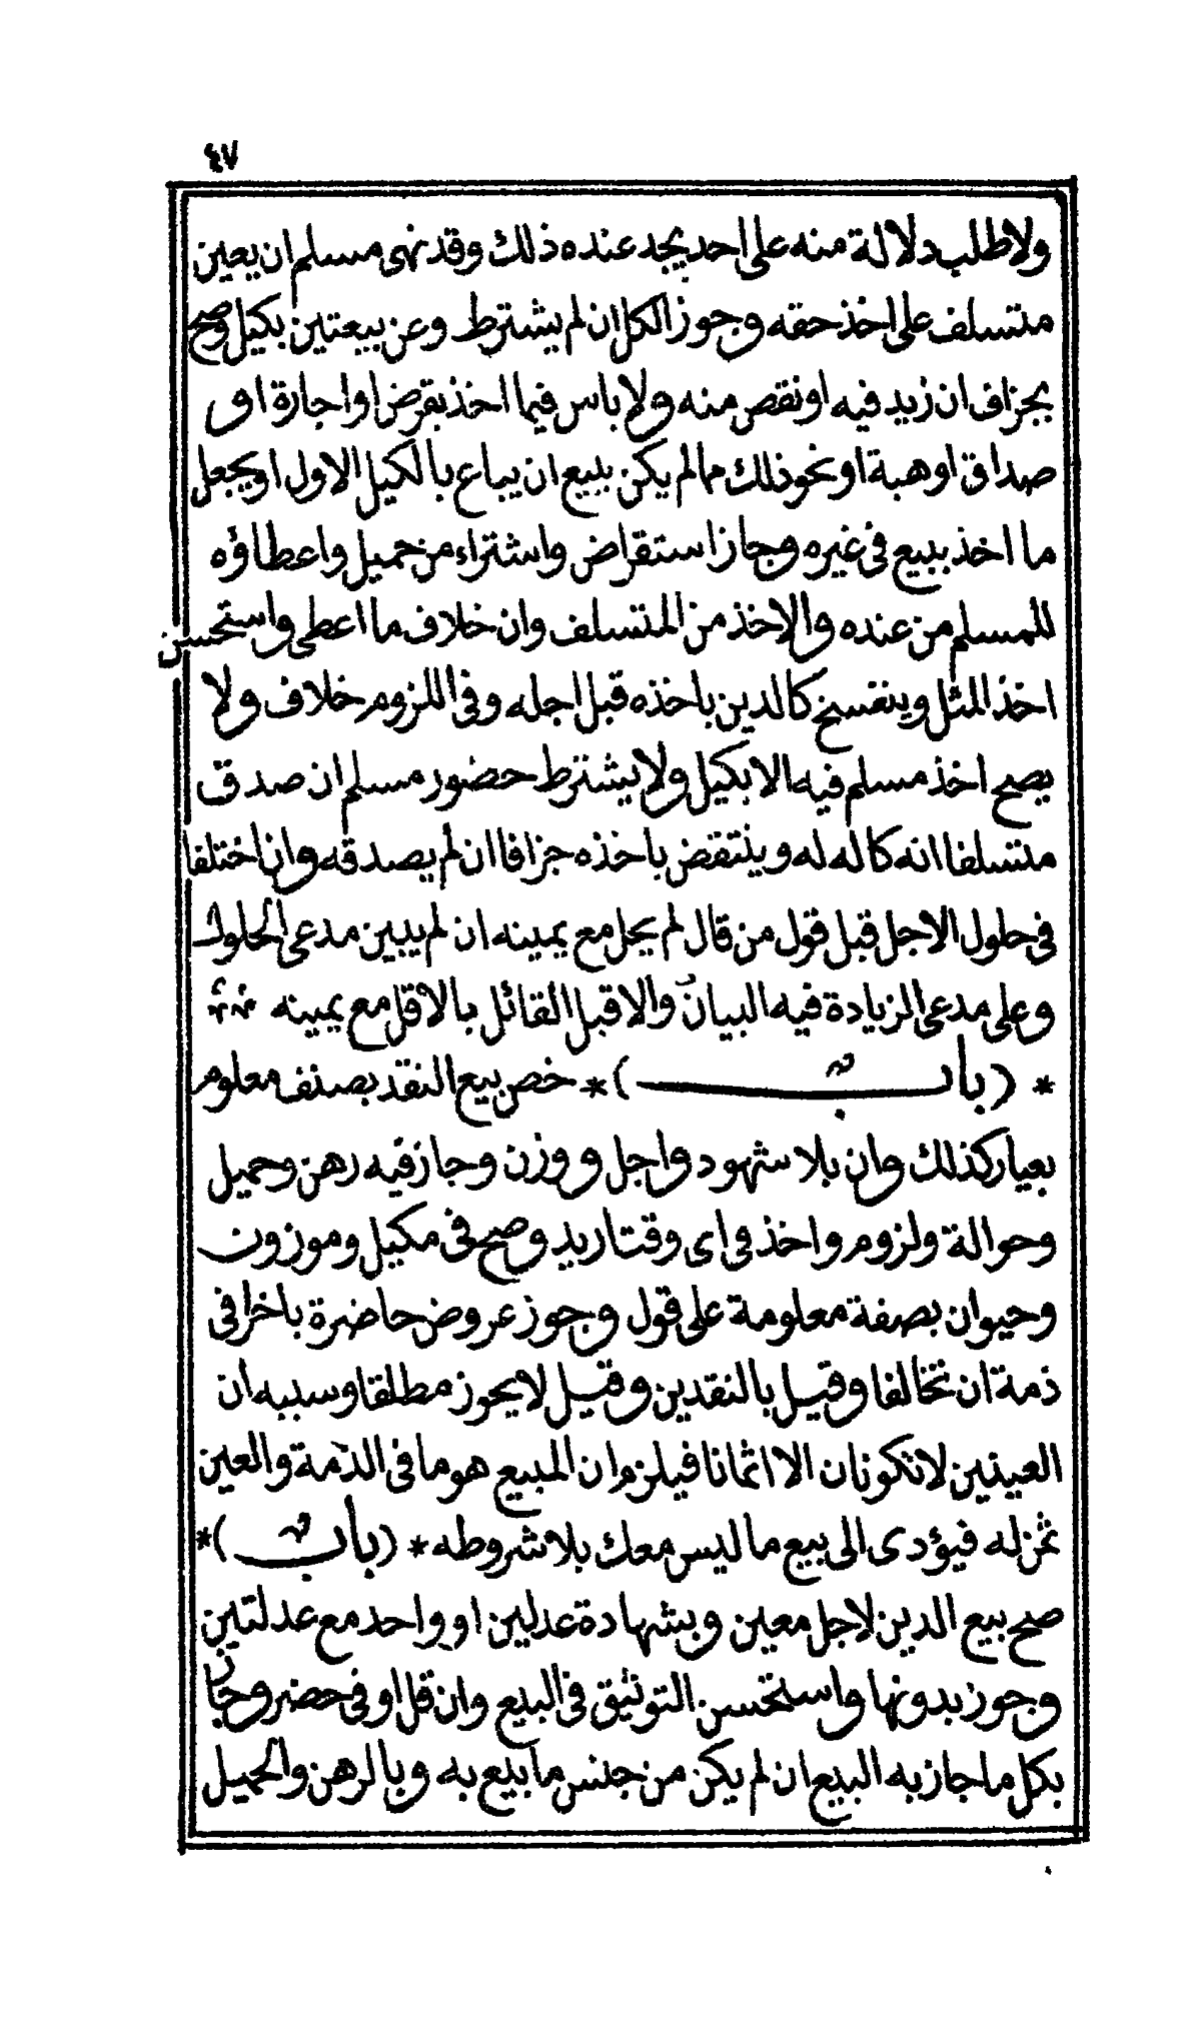 ٤٧
ولا طلب دلالة منه على احد يجد عنده ذلك وقد نهى مسلم ان يعين
متسلف على اخذ حقه وجوز الكل ان لم يشترط وعن بيعتين بكيل وصح
بجزاف ان زيد فيه او نقص منه ولا باس فيما اخذ بقرض او اجارة او
صداق او هبة او نحو ذلك مما لم يكن ببيع ان يباع بالكيل الاول او يجعل
ما اخذ ببيع فى غيره وجاز استقراض واشتراء من حميل واعطاؤه
للمسلم من عنده والاخذ من المتسلف وان خلاف ما اعطى واستحسن
اخذ المثل وينفسخ كالدين باخذه قبل اجله وفى اللزوم خلاف ولا
يصح اخذ مسلم فيه الا بكيل ولا يشترط حضور مسلم ان صدق
متسلفا انه كاله له وينتقض باخذه جزافا ان لم يصدقه وان اختلفا
فى حلول الاجل قبل قول من قال لم يحل مع يمينه ان لم يبين مدعى الحلول
وعلى مدعى الزيادة فيه البيان والا قبل القائل بالاقل مع يمينه
* (باب) * خص بيع النقد بصنف معلوم
بعيار كذلك وان بلا شهود واجل ووزن وجاز فيه رهن وحميل
وحوالة ولزوم واخذ فى اى وقت اريد وصح فى مكيل وموزون
وحيوان بصفة معلومة على قول وجوز عروض حاضرة باخرا فى
ذمة ان تخالفا وقيل بالنقدين وقيل لا يجوز مطلقا وسببه ان
العينين لا تكونان الا اثمانا فيلزم ان المبيع هو ما فى الذمة والعين
ثمن له فيؤدى الى بيع ما ليس معك بلا شروطه * (باب) *
صح بيع الدين لاجل معين وبشهادة عدلين او واحد مع عدلتين
وجوز بدونها واستحسن التوثيق فى البيع وان قل او فى حضر وجاز
بكل ما جاز به البيع ان لم يكن من جنس ما بيع به وبالرهن والحميل